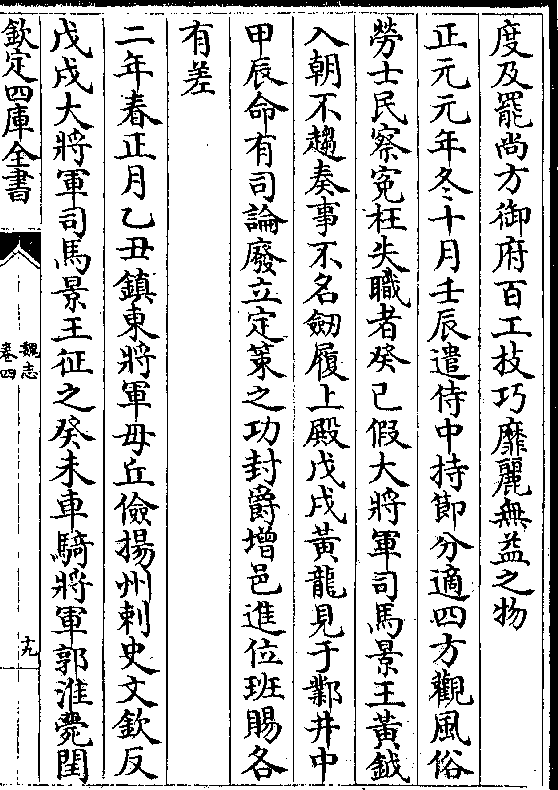 度及罷尚方御府百工技巧靡麗無益之物
正元元年冬十月壬辰遣侍中持節分適四方觀風俗
勞士民察寃枉失職者癸巳假大將軍司馬景王黃鉞
入朝不趨奏事不名劒履上殿戊戌黃龍見于鄴井中
甲辰命有司論廢立定策之功封爵增邑進位班賜各
有差
二年春正月乙丑鎮東將軍毋丘儉揚州刺史文欽反
戊戌大將軍司馬景王征之癸未車騎將軍郭淮薨閏
欽定四庫全書
魏志
卷四
十九